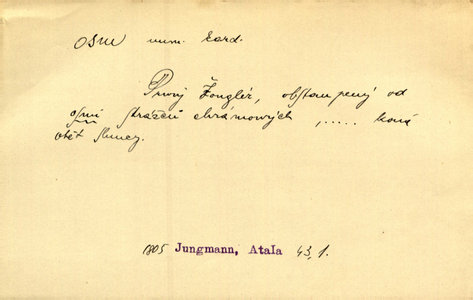 osm num. card.
Prvný Žonglér, obstaupený od
osmi strážců chrámových ,..... koná
obět slunci.
1805 Jungmann, Atala 43, 1.